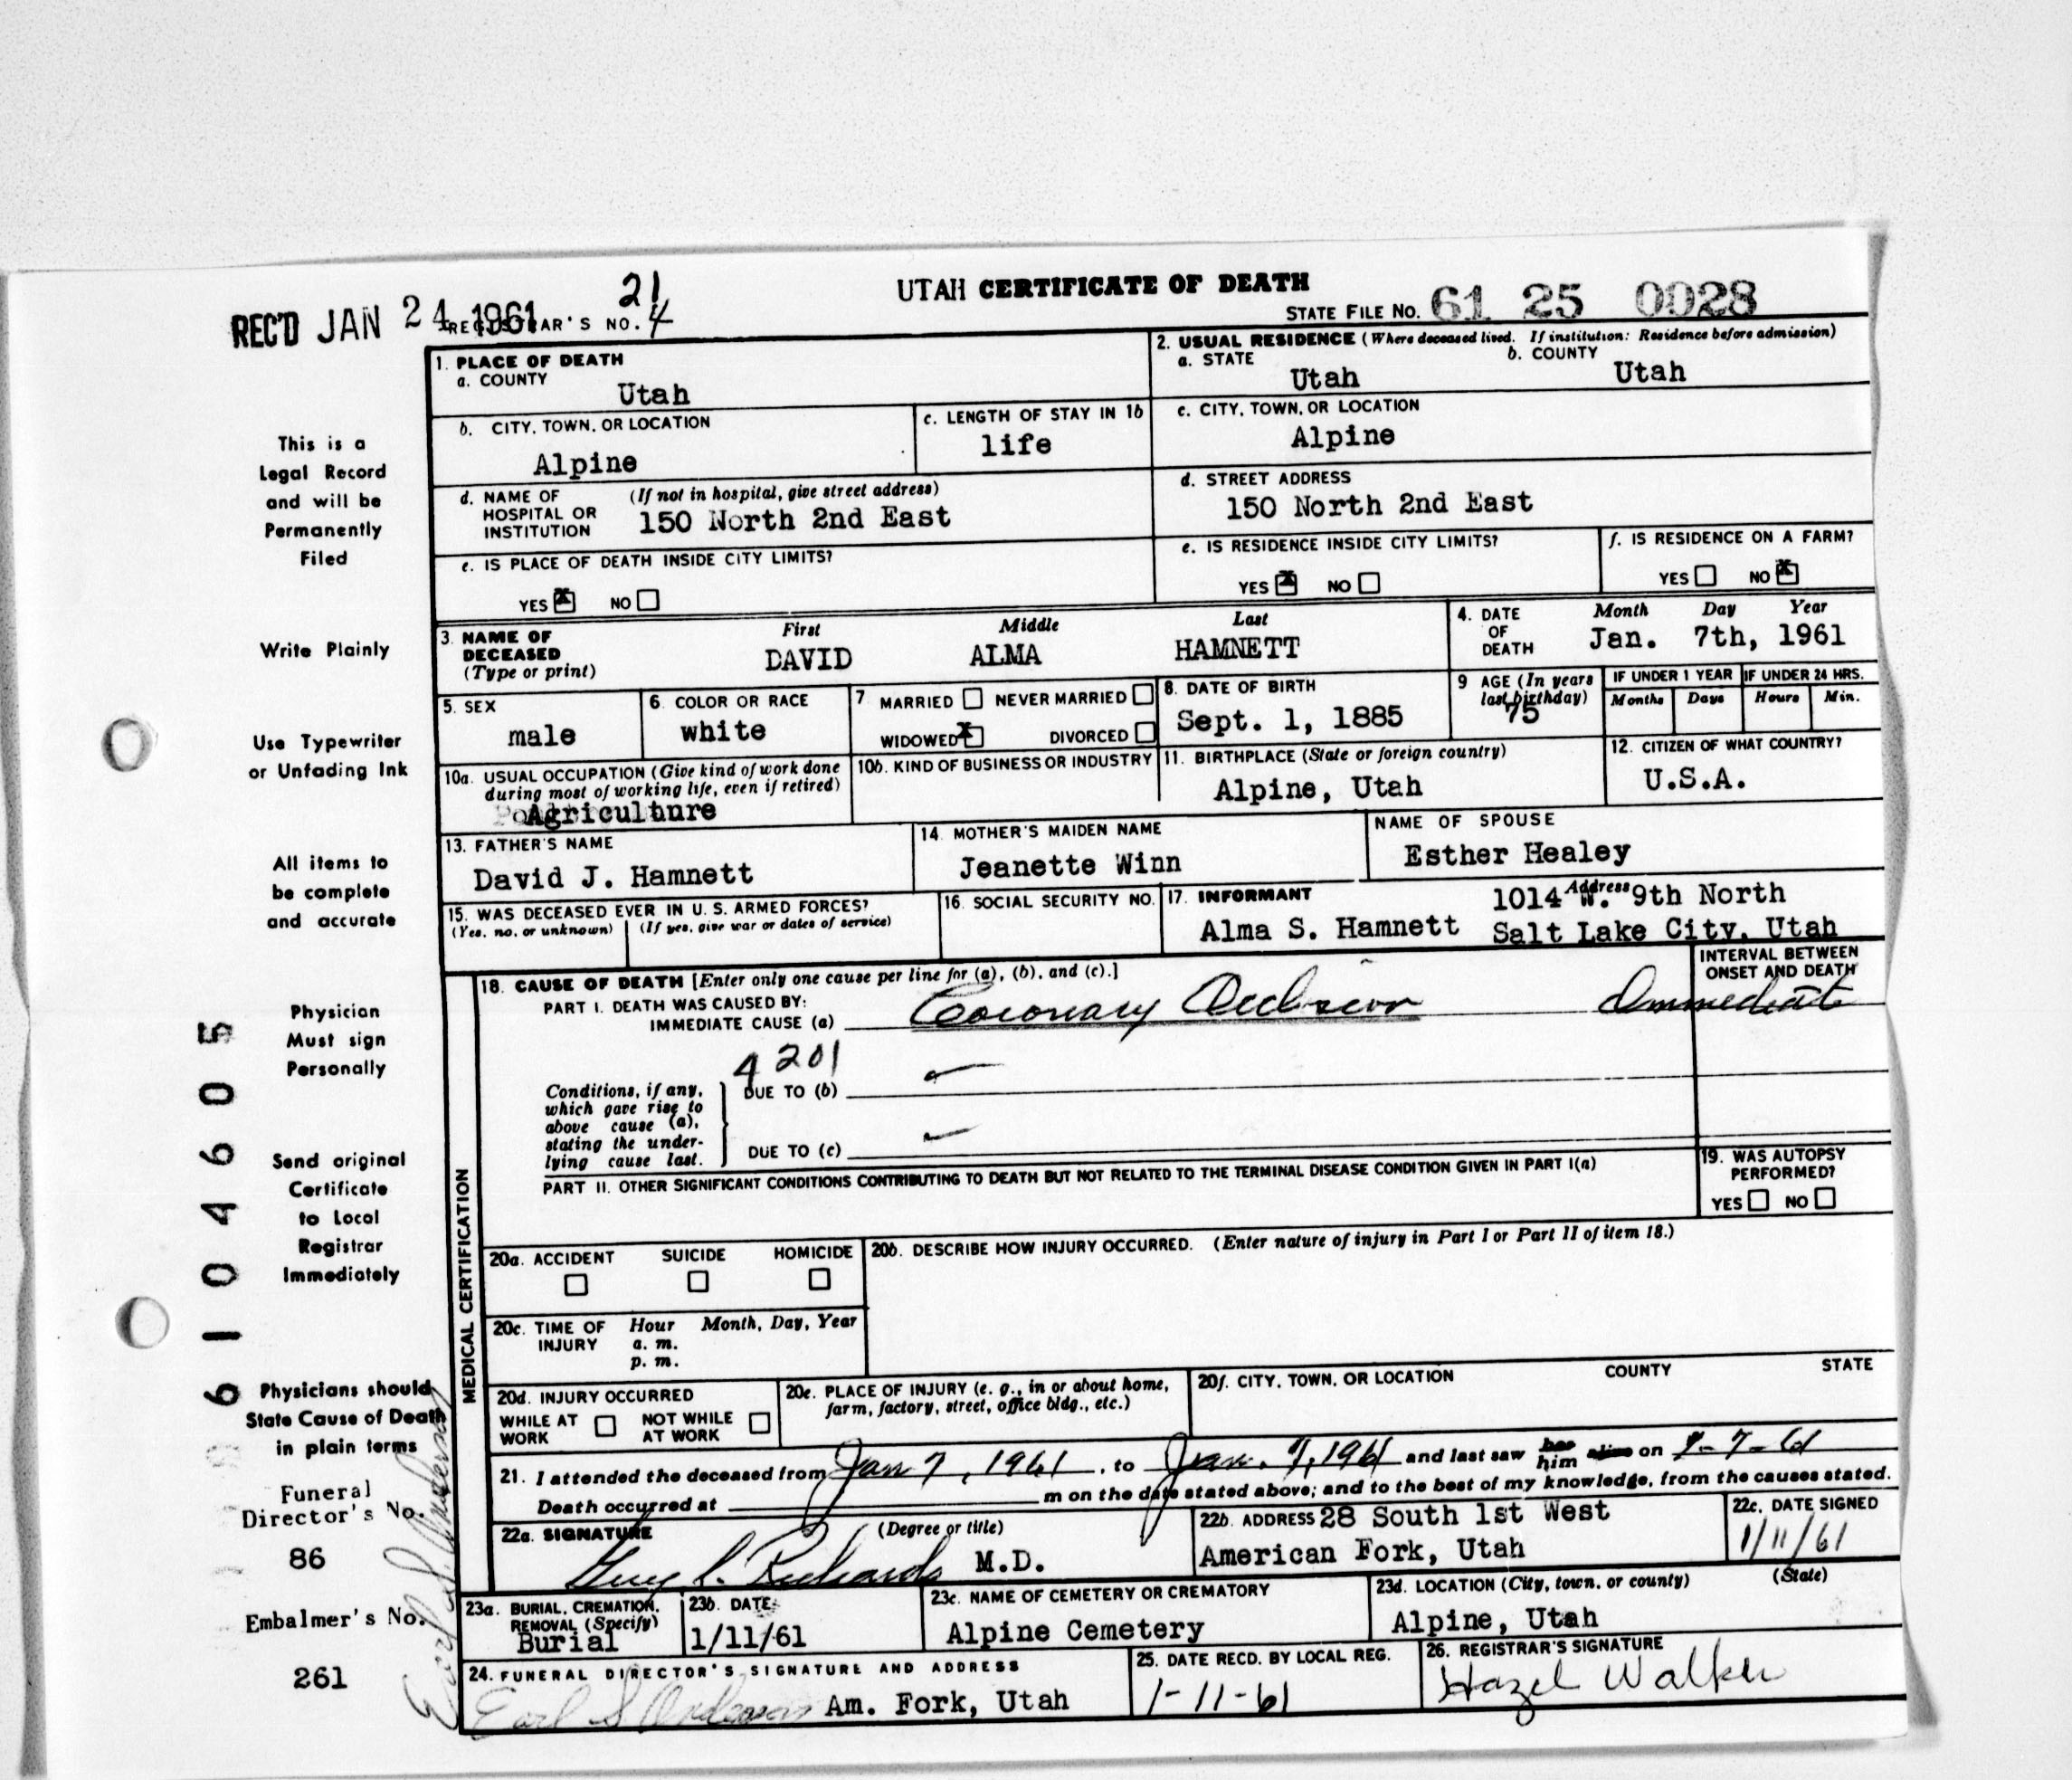 UTAH CERTIFICATE OF DEATH
REC'D JAN 24 1961
REGISTRAR'S NO. 21 4
STATE FILE NO. 61 25 0028
1. PLACE OF DEATH
a. COUNTY
Utah
2. USUAL RESIDENCE (Where deceased lived. If institution: Residence before admission)
a. STATE
Utah
b. COUNTY
Utah
b. CITY, TOWN, OR LOCATION
Alpine
c. LENGTH OF STAY IN 1b
life
c. CITY, TOWN, OR LOCATION
Alpine
d. NAME OF HOSPITAL OR INSTITUTION
(If not in hospital, give street address)
150 North 2nd East
d. STREET ADDRESS
150 North 2nd East
e. IS PLACE OF DEATH INSIDE CITY LIMITS?
YES X NO
e. IS RESIDENCE INSIDE CITY LIMITS?
YES X NO
f. IS RESIDENCE ON A FARM?
YES NO X
3. NAME OF DECEASED (Type or print)
First Middle Last
DAVID ALMA HAMNETT
4. DATE OF DEATH
Month Day Year
Jan. 7th, 1961
5. SEX
male
6. COLOR OR RACE
white
7. MARRIED NEVER MARRIED
WIDOWED X DIVORCED
8. DATE OF BIRTH
Sept. 1, 1885
9 AGE (In years last birthday)
75
IF UNDER 1 YEAR
Months Days
IF UNDER 24 HRS.
Hours Min.
10a. USUAL OCCUPATION (Give kind of work done during most of working life, even if retired)
Agriculture
10b. KIND OF BUSINESS OR INDUSTRY
11. BIRTHPLACE (State or foreign country)
Alpine, Utah
12. CITIZEN OF WHAT COUNTRY?
U.S.A.
13. FATHER'S NAME
David J. Hamnett
14. MOTHER'S MAIDEN NAME
Jeanette Winn
NAME OF SPOUSE
Esther Healey
15. WAS DECEASED EVER IN U. S. ARMED FORCES?
(Yes, no, or unknown) (If yes, give war or dates of service)
16. SOCIAL SECURITY NO.
17. INFORMANT
Alma S. Hamnett
Address
1014 W. 9th North
Salt Lake City, Utah
18. CAUSE OF DEATH [Enter only one cause per line for (a), (b), and (c).]
INTERVAL BETWEEN ONSET AND DEATH
PART I. DEATH WAS CAUSED BY:
IMMEDIATE CAUSE (a) Coronary Occlusion Immediate
4201
Conditions, if any, which gave rise to above cause (a), stating the underlying cause last.
DUE TO (b)
DUE TO (c)
PART II. OTHER SIGNIFICANT CONDITIONS CONTRIBUTING TO DEATH BUT NOT RELATED TO THE TERMINAL DISEASE CONDITION GIVEN IN PART I(a)
19. WAS AUTOPSY PERFORMED?
YES NO
MEDICAL CERTIFICATION
20a. ACCIDENT SUICIDE HOMICIDE
20b. DESCRIBE HOW INJURY OCCURRED. (Enter nature of injury in Part I or Part II of item 18.)
20c. TIME OF INJURY
Hour Month, Day, Year
a. m.
p. m.
20d. INJURY OCCURRED
WHILE AT WORK NOT WHILE AT WORK
20e. PLACE OF INJURY (e. g., in or about home, farm, factory, street, office bldg., etc.)
20f. CITY, TOWN, OR LOCATION COUNTY STATE
21. I attended the deceased from Jan 7, 1961, to Jan. 7, 1961 and last saw her him alive on 1-7-61
Death occurred at m on the date stated above; and to the best of my knowledge, from the causes stated.
22a. SIGNATURE (Degree or title)
Guy S. Richards M.D.
22b. ADDRESS 28 South 1st West
American Fork, Utah
22c. DATE SIGNED
1/11/61
23a. BURIAL, CREMATION, REMOVAL (Specify)
Burial
23b. DATE
1/11/61
23c. NAME OF CEMETERY OR CREMATORY
Alpine Cemetery
23d. LOCATION (City, town, or county) (State)
Alpine, Utah
24. FUNERAL DIRECTOR'S SIGNATURE AND ADDRESS
Earl S Anderson Am. Fork, Utah
25. DATE RECD. BY LOCAL REG.
1-11-61
26. REGISTRAR'S SIGNATURE
Hazel Walker
This is a
Legal Record
and will be
Permanently
Filed
Write Plainly
Use Typewriter
or Unfading Ink
All items to
be complete
and accurate
Physician
Must sign
Personally
Send original
Certificate
to Local
Registrar
Immediately
Physicians should
State Cause of Death
in plain terms
Funeral
Director's No.
86
Embalmer's No.
261
Earl S Anderson
6104605